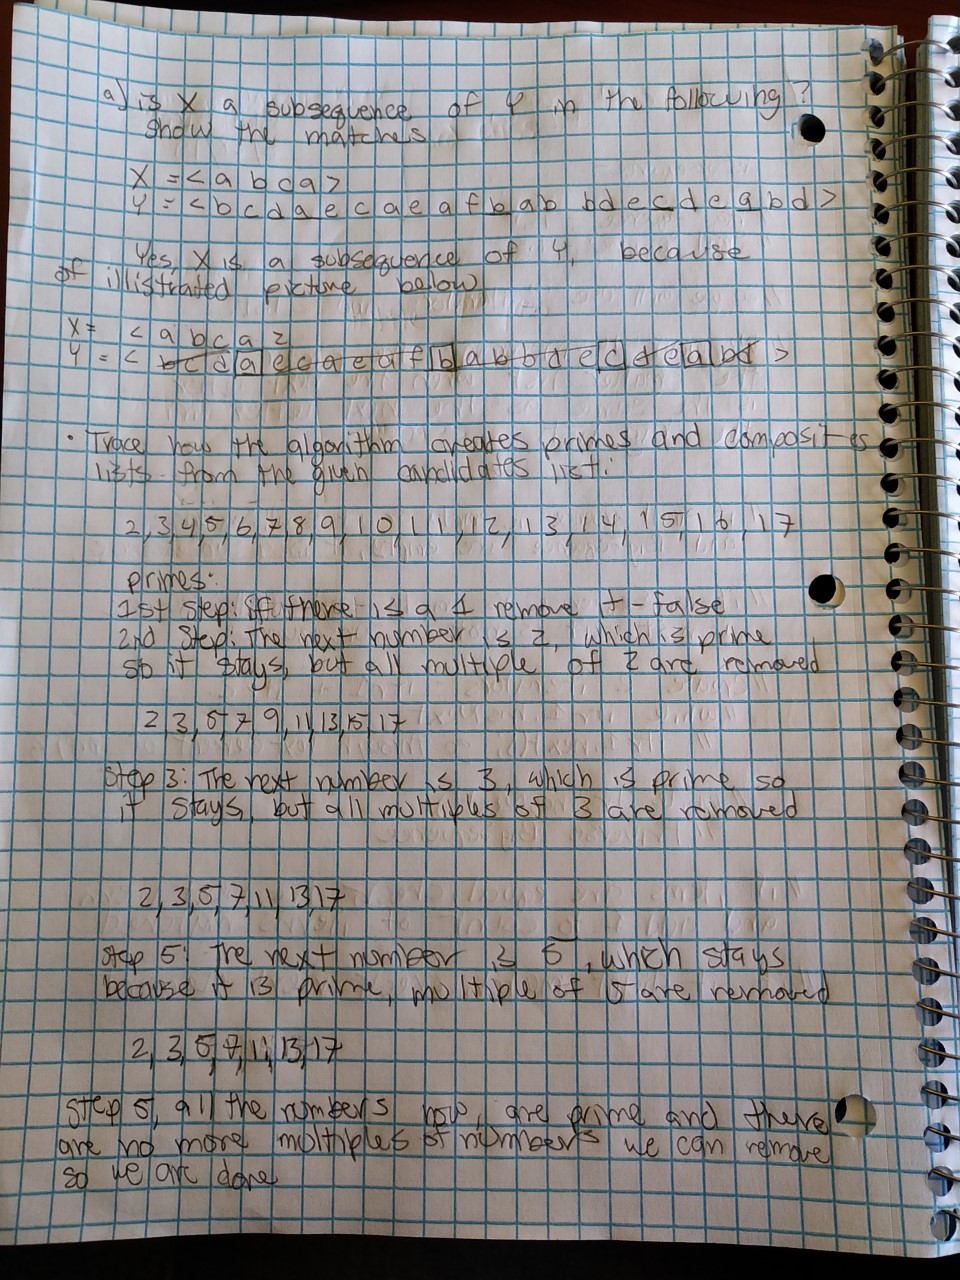 a) is X a subsequence of Y in the following?
Show the matches
X = < a b c a >
Y = < b c d a e c a e a f b a b b d e c d e a b d >
Yes, X is a subsequence of Y, because
of illistraited picture below
X = < a b c a >
Y = < b c d a e c a e a f b a b b d e c d e a b d >
• Trace how the algorithm creates primes and composites
lists from the given candidates list:
2, 3, 4, 5, 6, 7, 8, 9, 10, 11, 12, 13, 14, 15, 16, 17
primes:
1st step: if there is a 1 remove it - false
2nd Step: The next number is 2, which is prime
so it stays, but all multiple of 2 are removed
2, 3, 5, 7, 9, 11, 13, 15, 17
Step 3: The next number is 3, which is prime so
it stays, but all multiples of 3 are removed
2, 3, 5, 7, 11, 13, 17
step 5: The next number is 5, which stays
because it is prime, multiple of 5 are removed
2, 3, 5, 7, 11, 13, 17
Step 5, all the numbers now, are prime and there
are no more multiples of numbers we can remove
so we are done